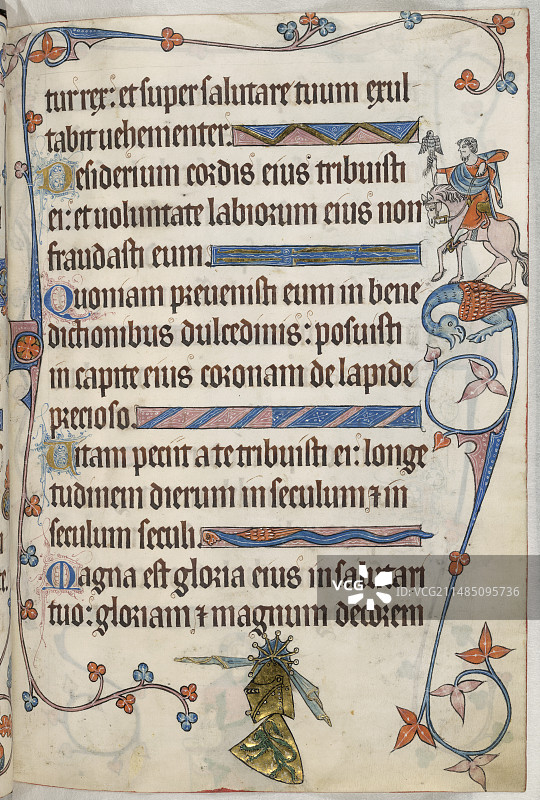 tur rex: et super salutare tuum exul
tabit uehementer.
Desiderium cordis eius tribuisti
ei: et uoluntate labiorum eius non
fraudasti eum.
Quoniam preuenisti eum in bene
dictionibus dulcedinis: posuisti
in capite eius coronam de lapide
precioso.
Uitam peciit a te tribuisti ei: longi
tudinem dierum in seculum ⁊ in
seculum seculi.
Magna est gloria eius in salutari
tuo: gloriam ⁊ magnum decorem
VCG
VCG.COM
ID:VCG211485095736